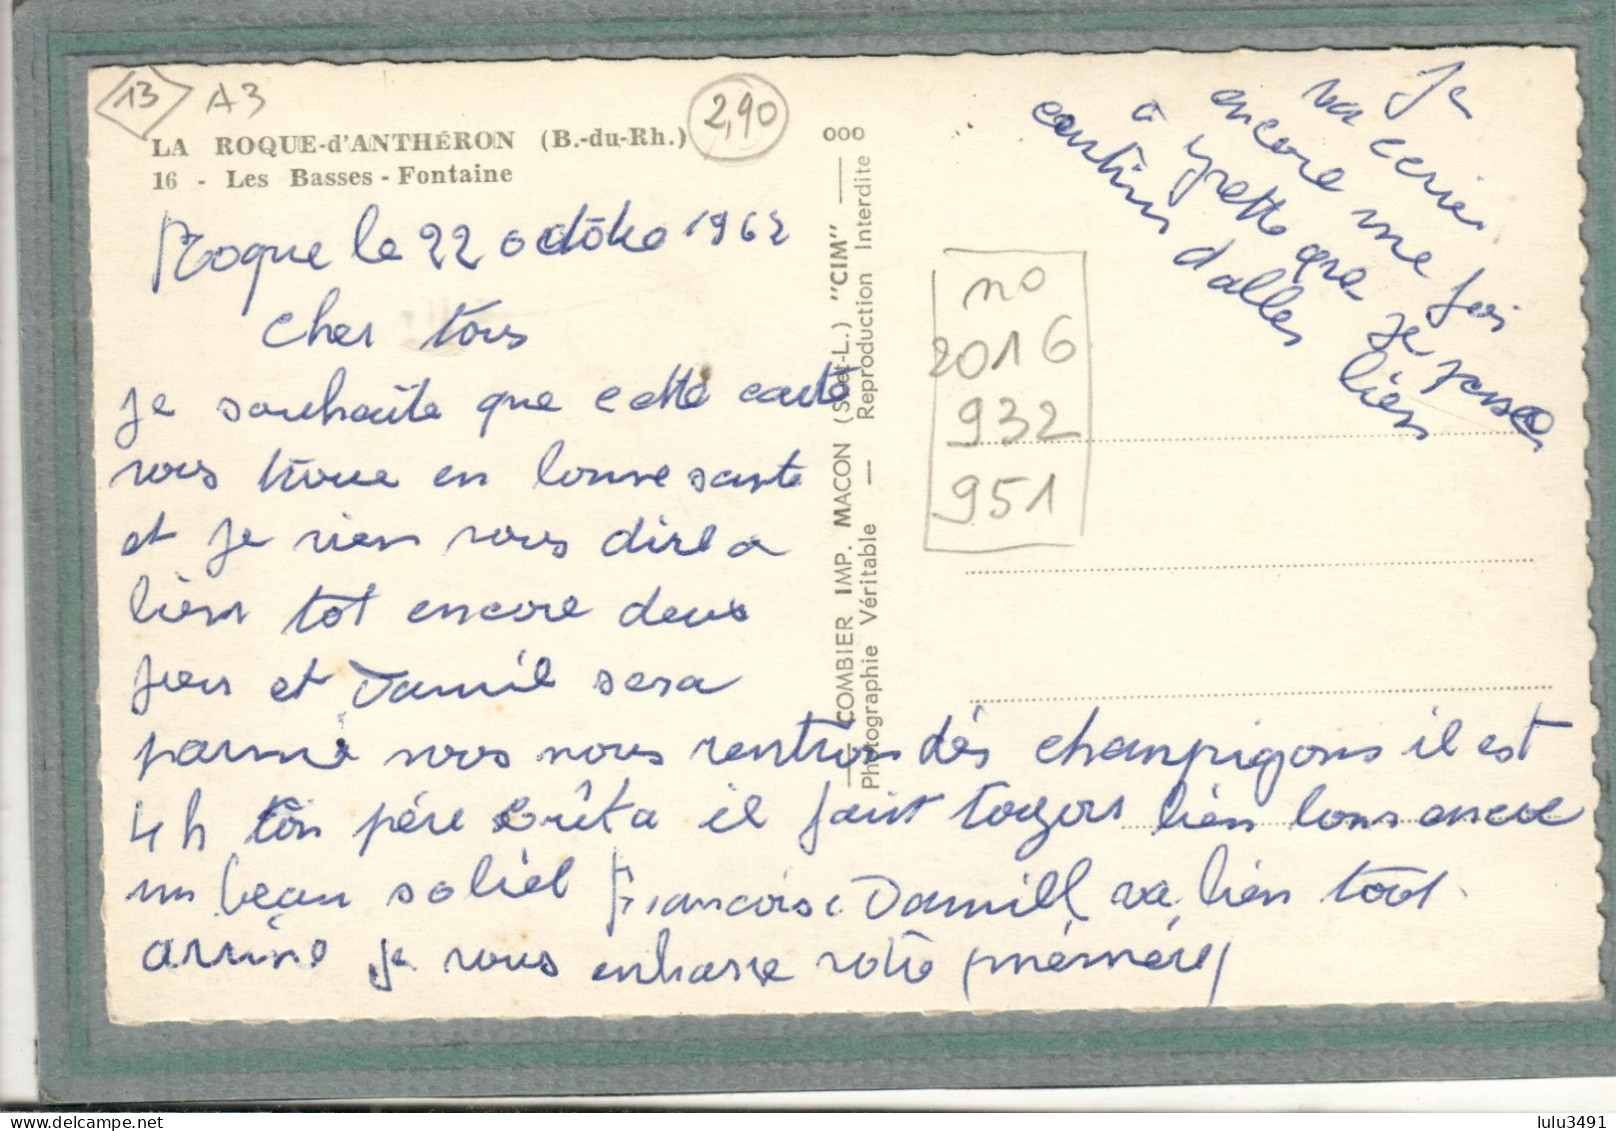 13 A3
2,90
LA ROQUE-d'ANTHÉRON (B.-du-Rh.)
16 - Les Basses-Fontaine
Roque le 22 octobre 1962
cher tous
je souhaite que cette carte
vous trouve en bonne sante
et je viens vous dire a
bien tot encore deux
jour et Daniel sera
parmi vous nous rentrons dés champigons il est
4h ton pére il fait togors bien bons encore
un beau soliel Francoise Daniell va bien tout
arrive je vous enbrasse votre mémére
COMBIER IMP. MACON (S.-et-L.) "CIM"
Photographie Véritable — Reproduction Interdite
ooo
no
2016
932
951
Je
va ecrire
encore une fois
à que je pense
continu d'alles bien
lulu3491